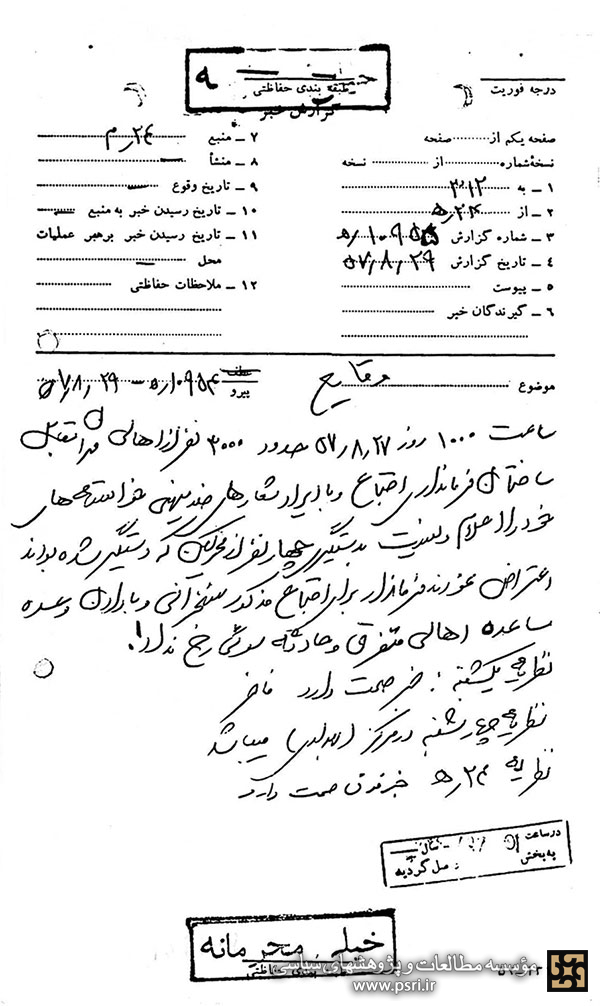 طبقه بندی حفاظتی
گزارش خبر
درجه فوریت
صفحه یکم از صفحه
نسخهٔ شماره از نسخه
۱ ـ به ۳۱۲
۲ ـ از ۲۴ره
۳ ـ شماره گزارش ۱۰۹۵۵ره
۴ ـ تاریخ گزارش ۵۷٫۸٫۲۹
۵ ـ پیوست
۶ ـ گیرندگان خبر
۷ ـ منبع
۸ ـ منشأ
۹ ـ تاریخ وقوع
۱۰ ـ تاریخ رسیدن خبر به منبع
۱۱ ـ تاریخ رسیدن خبر برهبر عملیات
محل
۱۲ ـ ملاحظات حفاظتی
موضوع وقایع
عطف
پیرو ۱۰۹۵۴ره ـ ۵۷٫۸٫۲۹
ساعت ۱۰۰۰ روز ۵۷٫۸٫۲۷ حدود ۳۰۰۰ نفر از اهالی در مقابل
ساختمان فرمانداری اجتماع و با ایراد شعارهای ضد میهنی خواسته‌های
خود را اعلام و نسبت به دستگیری چهار نفر از محرکین که دستگیر شده بودند
اعتراض نمودند فرماندار برای اجتماع مذکور سخنرانی و با دادن وعده
مساعده اهالی متفرق و حادثه سوئی رخ نداد.
نظریه یکشنبه : خبر صحت دارد
نظریه چهارشنبه در مرکز میباشد
نظریه ۲۴ره خبر فوق صحت دارد
در ساعت
به بخش
خیلی محرمانه
طبقه بندی حفاظتی
مؤسسه مطالعات و پژوهشهای سیاسی
www.psri.ir